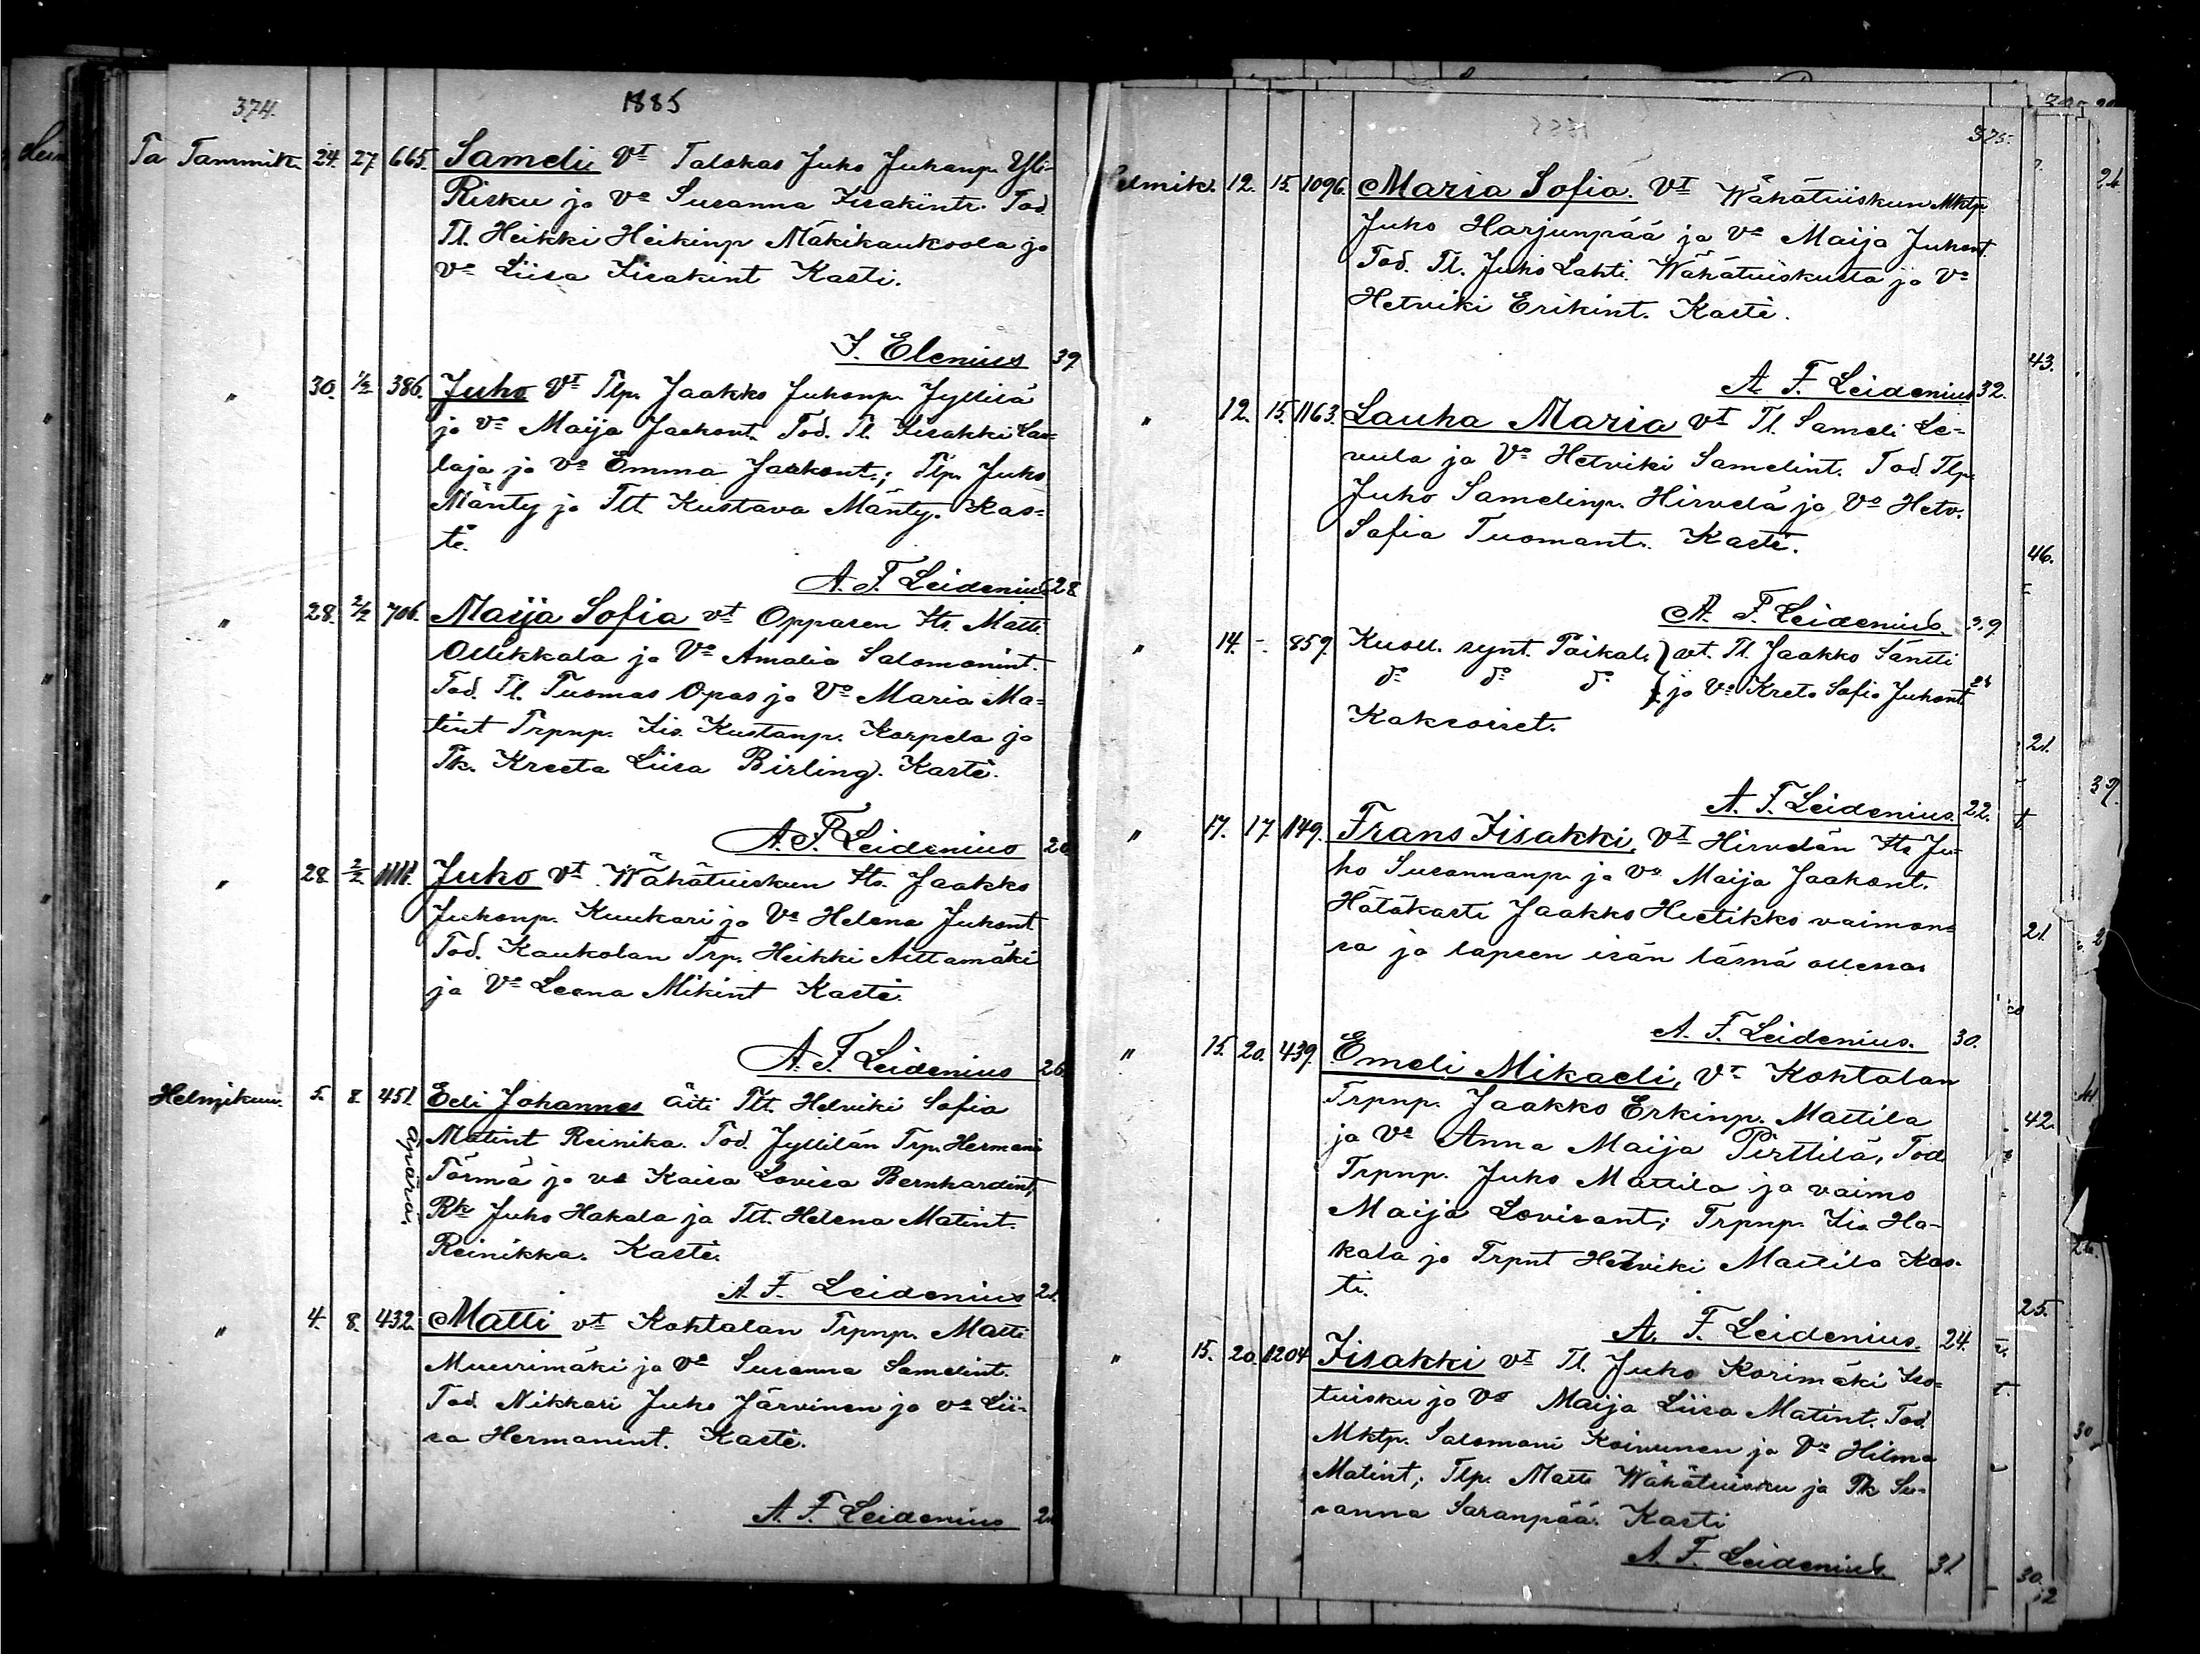 374.
1885
Tammik. 24. 27. 665. Sameli Vt Talokas Juho Juhanp. Yli-
Risku ja Vo Susanna Iisakintr. Tod.
Tl. Heikki Heikinp Mäkikaukoola ja
Vo Liisa Iisakint Kasti.
J. Elenius 39
" 30. 1/2 386. Juho Vt Tlp. Jaakko Juhonp. Jyllilä
ja Vo Maija Jaakont. Tod. Tl. Iisakki
laja ja Vo Emma Jaakont.; Tlp. Juho
Mänty ja Tlt Kustava Mänty. Kas-
ti.
A. F. Leidenius 28
" 28. 2/2 706. Maija Sofia vt Opparen Its. Matti
Ollikkala ja Vo Amalia Salomonint.
Tod. Tl. Tuomas Opas ja Vo Maria Ma-
tint Trpnp. Iis. Kustanp. Korpela ja
Tk. Kreeta Liisa Birling. Kasti.
A. F. Leidenius
" 28 2/2 Juho Vt Wähätuiskun Its. Jaakko
Juhonp. Kuukari ja Vo Helena Juhont
Tod. Kaukolan Trp. Heikki Aittamäki
ja Vo Leena Mikint Kasti.
A. F. Leidenius 26.
Helmikuu. 5. 8. 451. Eeli Johannes äiti Tlt. Helviki Sofia
äpärä. Matint Reinika. Tod. Jyllilän Trp. Hermani
Törmä ja vo Kaisa Lovisa Bernhardint,
Rk Juho Hakala ja Tlt. Helena Matint.
Reinikka. Kasti.
A. F. Leidenius
" 4. 8. 432. Matti vt Kohtalan Trpnp. Matti
Muurimäki ja Vo Susanna Samelint.
Tod. Nikkari Juho Järvinen ja vo Lii-
sa Hermanint. Kasti.
A. F. Leidenius
375.
12. 15. 1096. Maria Sofia. Vt Wähätuiskun Mktp.
Juho Harjunpää ja Vo Maija Juhont.
Tod. Tl. Juho Lahti Wähätuiskusta ja Vo
Hetviki Erikint. Kasti.
A. F. Leidenius 32.
" 12. 15. 1163. Lauha Maria vt Tl. Sameli Le-
vula ja Vo Hetviki Samelint. Tod Tlp.
Juho Samelinp. Hirvelä ja Vo Hetv.
Sofia Tuomant. Kasti.
A. F. Leidenius. 29.
" 14. - 859. Kuoll. synt. Poikal. } vt. Tl. Jaakko Säntti
do do do } ja Vo Kreta Sofia Juhont
Kaksoiset.
A. F. Leidenius. 22.
" 17. 17. 1149. Frans Iisakki, Vt Hirvelän Its Ju-
ho Susannanp. ja Vo Maija Jaakont.
Hätäkasti Jaakko Hietikko vaimon-
sa ja lapsen isän läsnä ollessa.
A. F. Leidenius. 30.
" 15. 20. 439. Emeli Mikaeli, Vt Kohtalan
Trpnp. Jaakko Erkinp. Mattila
ja Vo Anna Maija Pirttilä, Tod
Trpnp. Juho Mattila ja vaimo
Maija Lovisant; Trpnp. Iis Ha-
kala ja Trpnt Hetviki Mattila Kas-
ti.
A. F. Leidenius. 24.
" 15. 20. 1204 Iisakki vt Tl. Juho Korimäki Iso-
tuisku ja Vo Maija Liisa Matint. Tod.
Mktp. Salomoni Koivunen ja Vo Hilma
Matint; Tlp. Matti Wähätuisku ja Tk Su-
sanna Saranpää. Kasti
A. F. Leidenius. 31.